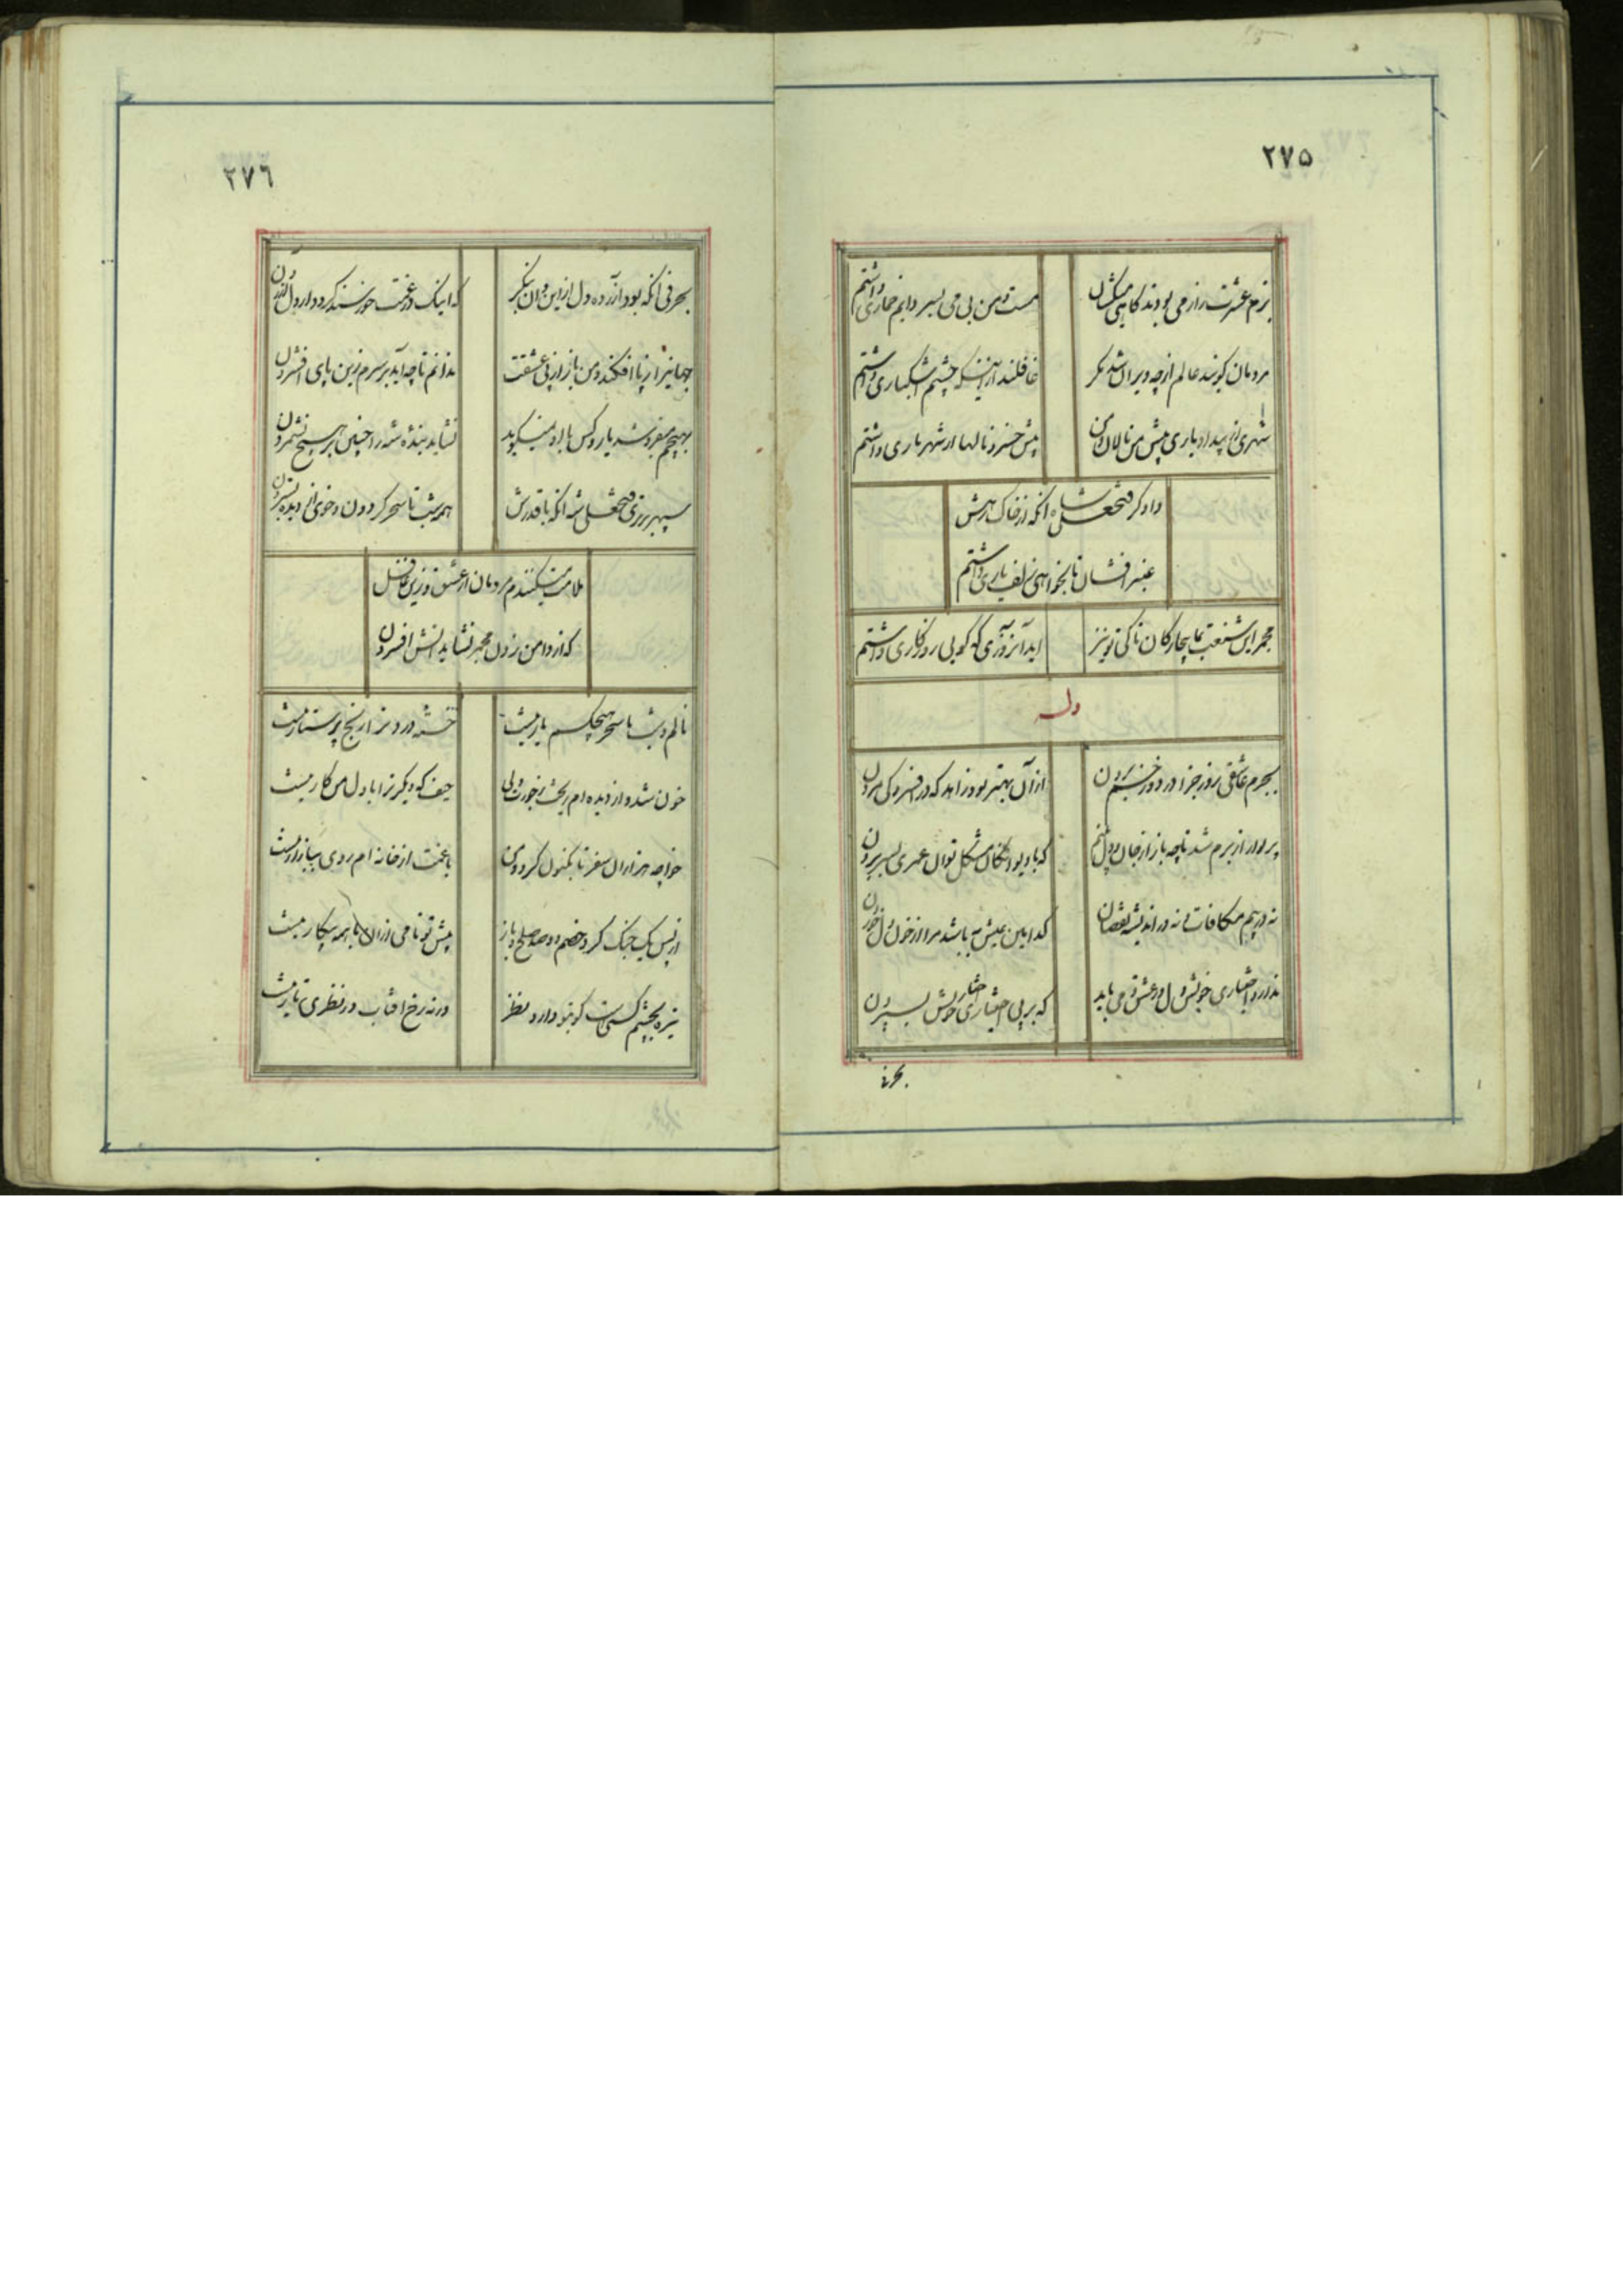 ۲۷۵
بزم عشرت را ز می بودند گاهی میکشان
مست و من بی می بسر دایم خماری داشتم
مردمان گویند عالم از چه ویران شد مگر
غافلند از اینکه چشم اشکباری داشتم
شهری از بیداد یاری پیش من نالان و من
پیش خسرو نالها از شهریاری داشتم
دادگر فتحعلی شاه آنکه از خاک رهش
عنبر افشان تا بخواهی زلف یاری داشتم
مجمر این شنعت به بیچارگان تا کی تو نیز
یاد آنروزی که گویی روزگاری داشتم
وله
بجرم عاشقی روز جزا در دوزخم بردن
از آن بهتر بود زاهد که در افسردگی مردن
پریوار از برم شد تا چه باز از جان و دل بینم
که با دیوانگان مشکل توان عمری بسر بردن
نه در بیم مکافات و نه در اندیشه نقصان
کدامین عیش به باشد مرا از خون دل خوردن
ندارد اختیاری خویش دل در عشق و می باید
که بر بی اختیاری اختیار خویش بسپردن
بحرفی
۲۷۶
بحرفی آنکه بود آزرده دل از این و آن بنگر
که اینک در غمت خورسند گردد از دل آزردن
جهانیرا ز پا افکند و من باز از پی عشقت
ندانم تا چه آید بر سرم زین پای افشردن
بهیچم میفروشد یار و کس با او نمیگوید
نشاید بنده شه را چنین بر هیچ نشمردن
سپهر برتری فتحعلی شه آنکه با قدرش
همه شب تا سحر گردون و خوی از دیده بستردن
ملامت میکنندم مردمان از عشق و زین غافل
که از دامن زدن مجمر نشاید آتش افسردن
نالم و شب تا سحر هیچکسم یار نیست
خسته درد و ترا رنج پرستار نیست
خون شد و از دیده ام ریخت ز جورت ولی
حیف که دیگر ترا با دل من کار نیست
خواجه هزاران سفر تا بکنون کرد و من
با غمت از خانه ام روی ببازار نیست
از پس یک جنگ کرد خصم دو صد صلح و باز
پیش تو نامی از آن با همه پیکار نیست
تیره بچشم کسی است کو بتو دارد نظر
ورنه رخ آفتاب در نظری تار نیست